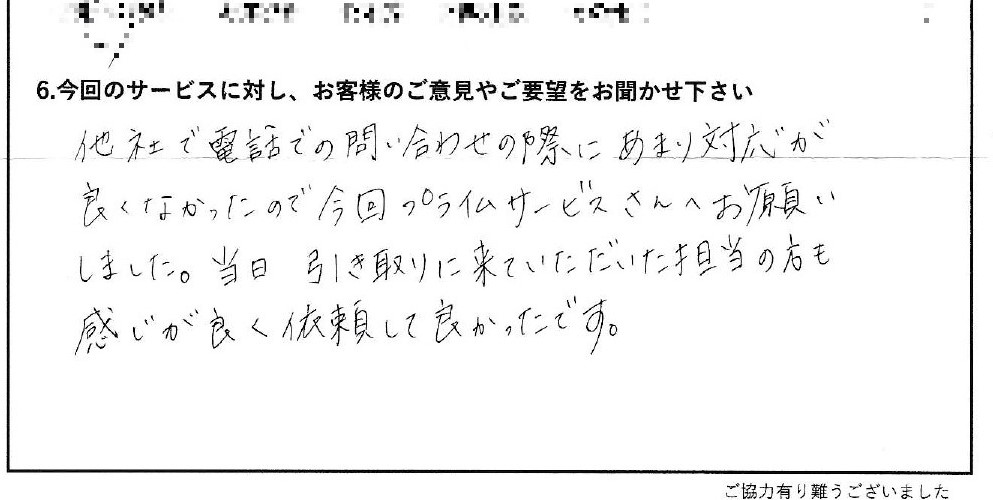 6.今回のサービスに対し、お客様のご意見やご要望をお聞かせ下さい
他社で電話での問い合わせの際にあまり対応が
良くなかったので今回プライムサービスさんへお願い
しました。当日 引き取りに来ていただいた担当の方も
感じが良く依頼して良かったです。
ご協力有り難うございました